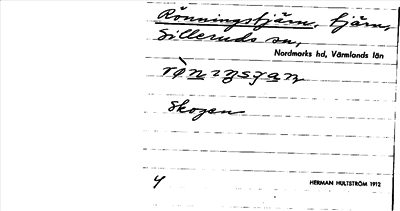 Rönningstjärn, tjärn,
Silleruds sn,
Nordmarks hd, Värmlands län
Skogen
4
HERMAN HULTSTRÖM 1912